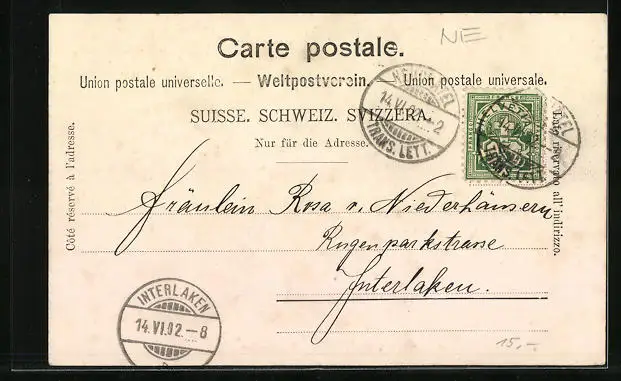 NE
Carte postale.
Union postale universelle. — Weltpostverein. — Union postale universale.
SUISSE. SCHWEIZ. SVIZZERA.
Nur für die Adresse.
Côté réservé à l'adresse.
Lato riservato all'indirizzo.
14.VI.02
2
TRANS. LETT.
Fräulein Rosa v. Niederhäusern
Rugenparkstrasse
Interlaken.
INTERLAKEN
14.VI.02.–8
15,-